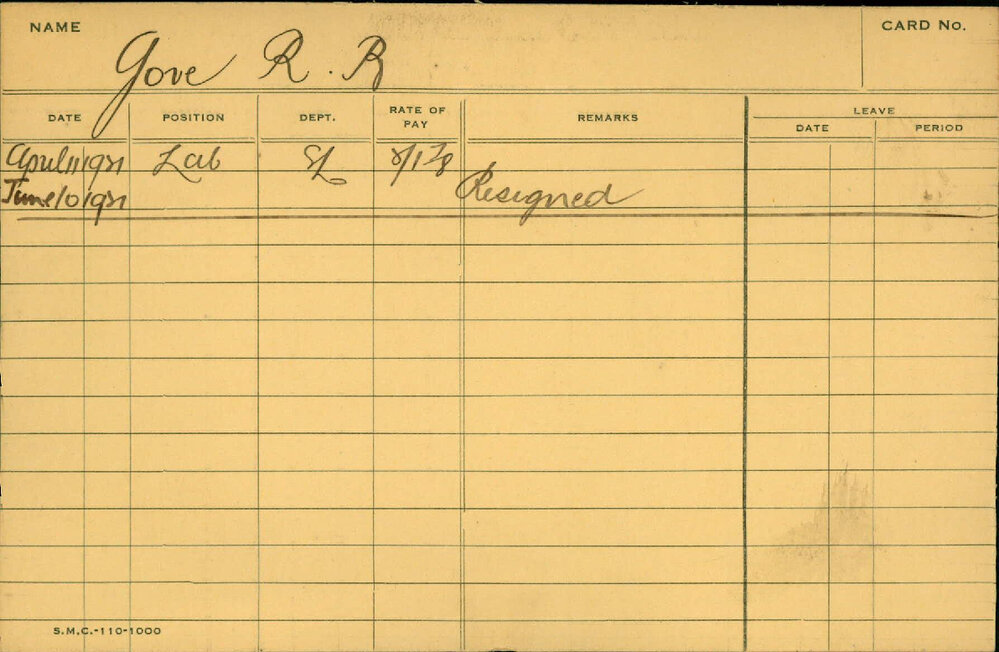 NAME Gove R. R CARD No.
DATE POSITION DEPT. RATE OF PAY REMARKS LEAVE
DATE PERIOD
April 11 1921 Lab
June 10 1921 Resigned
S.M.C.-110-1000